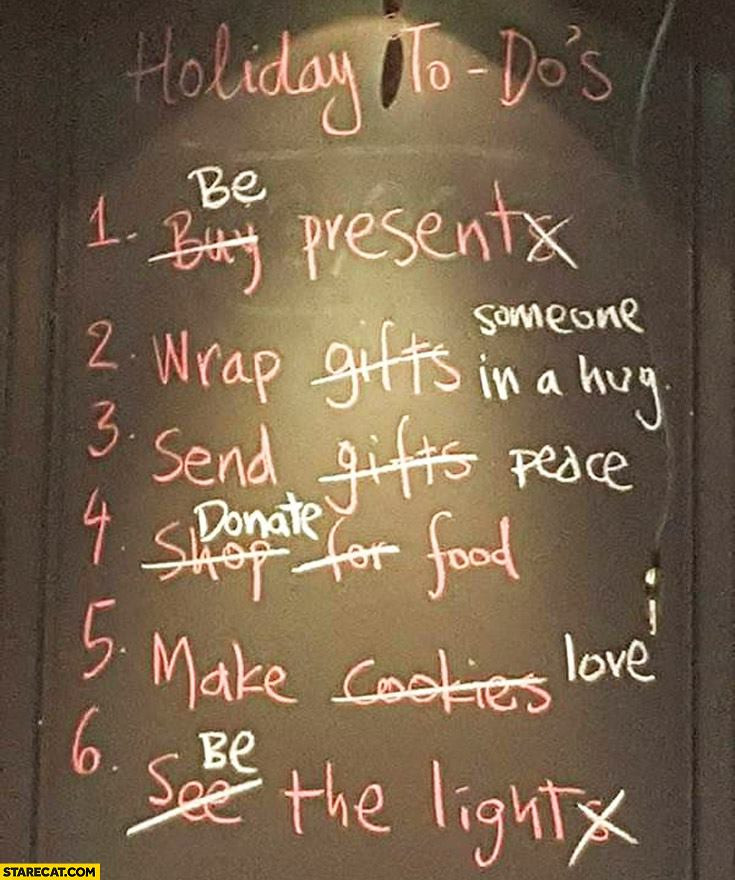 Holiday To-Do's
Be
1. Buy presents
someone
2. Wrap gifts in a hug.
3. Send gifts peace
Donate
4. Shop for food
5. Make Cookies love
Be
6. See the lights
STARECAT.COM